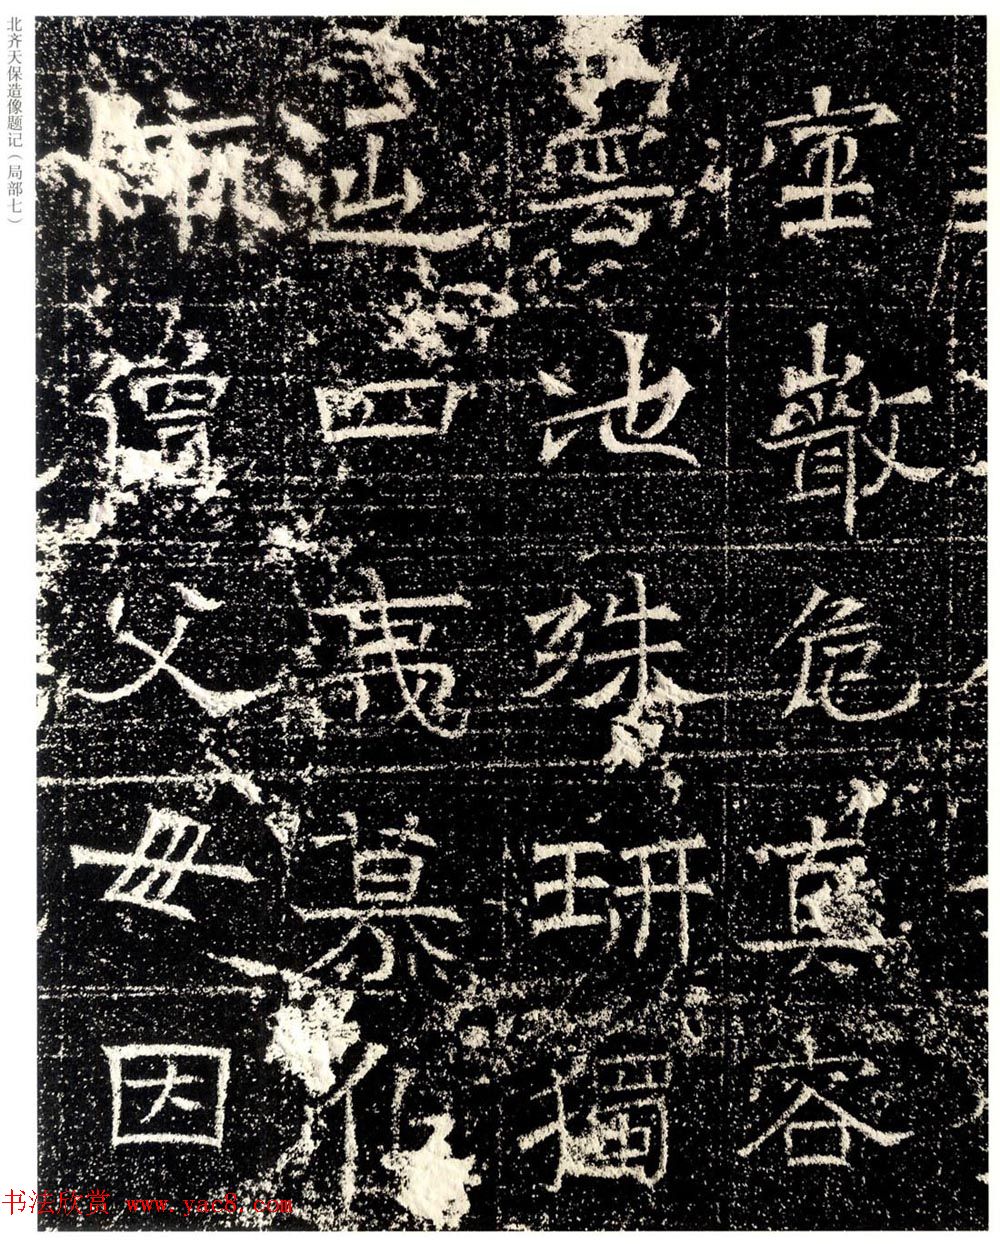 北齐天保造像题记（局部七）
室嚴危真容
雲池殊研獨
四夷慕化
僧父母因
书法欣赏 www.yac8.com